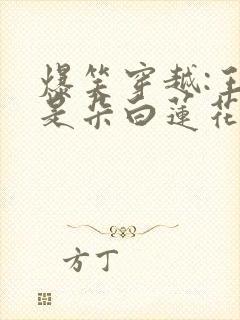 爆笑穿越:王
是朵白莲花
方丁